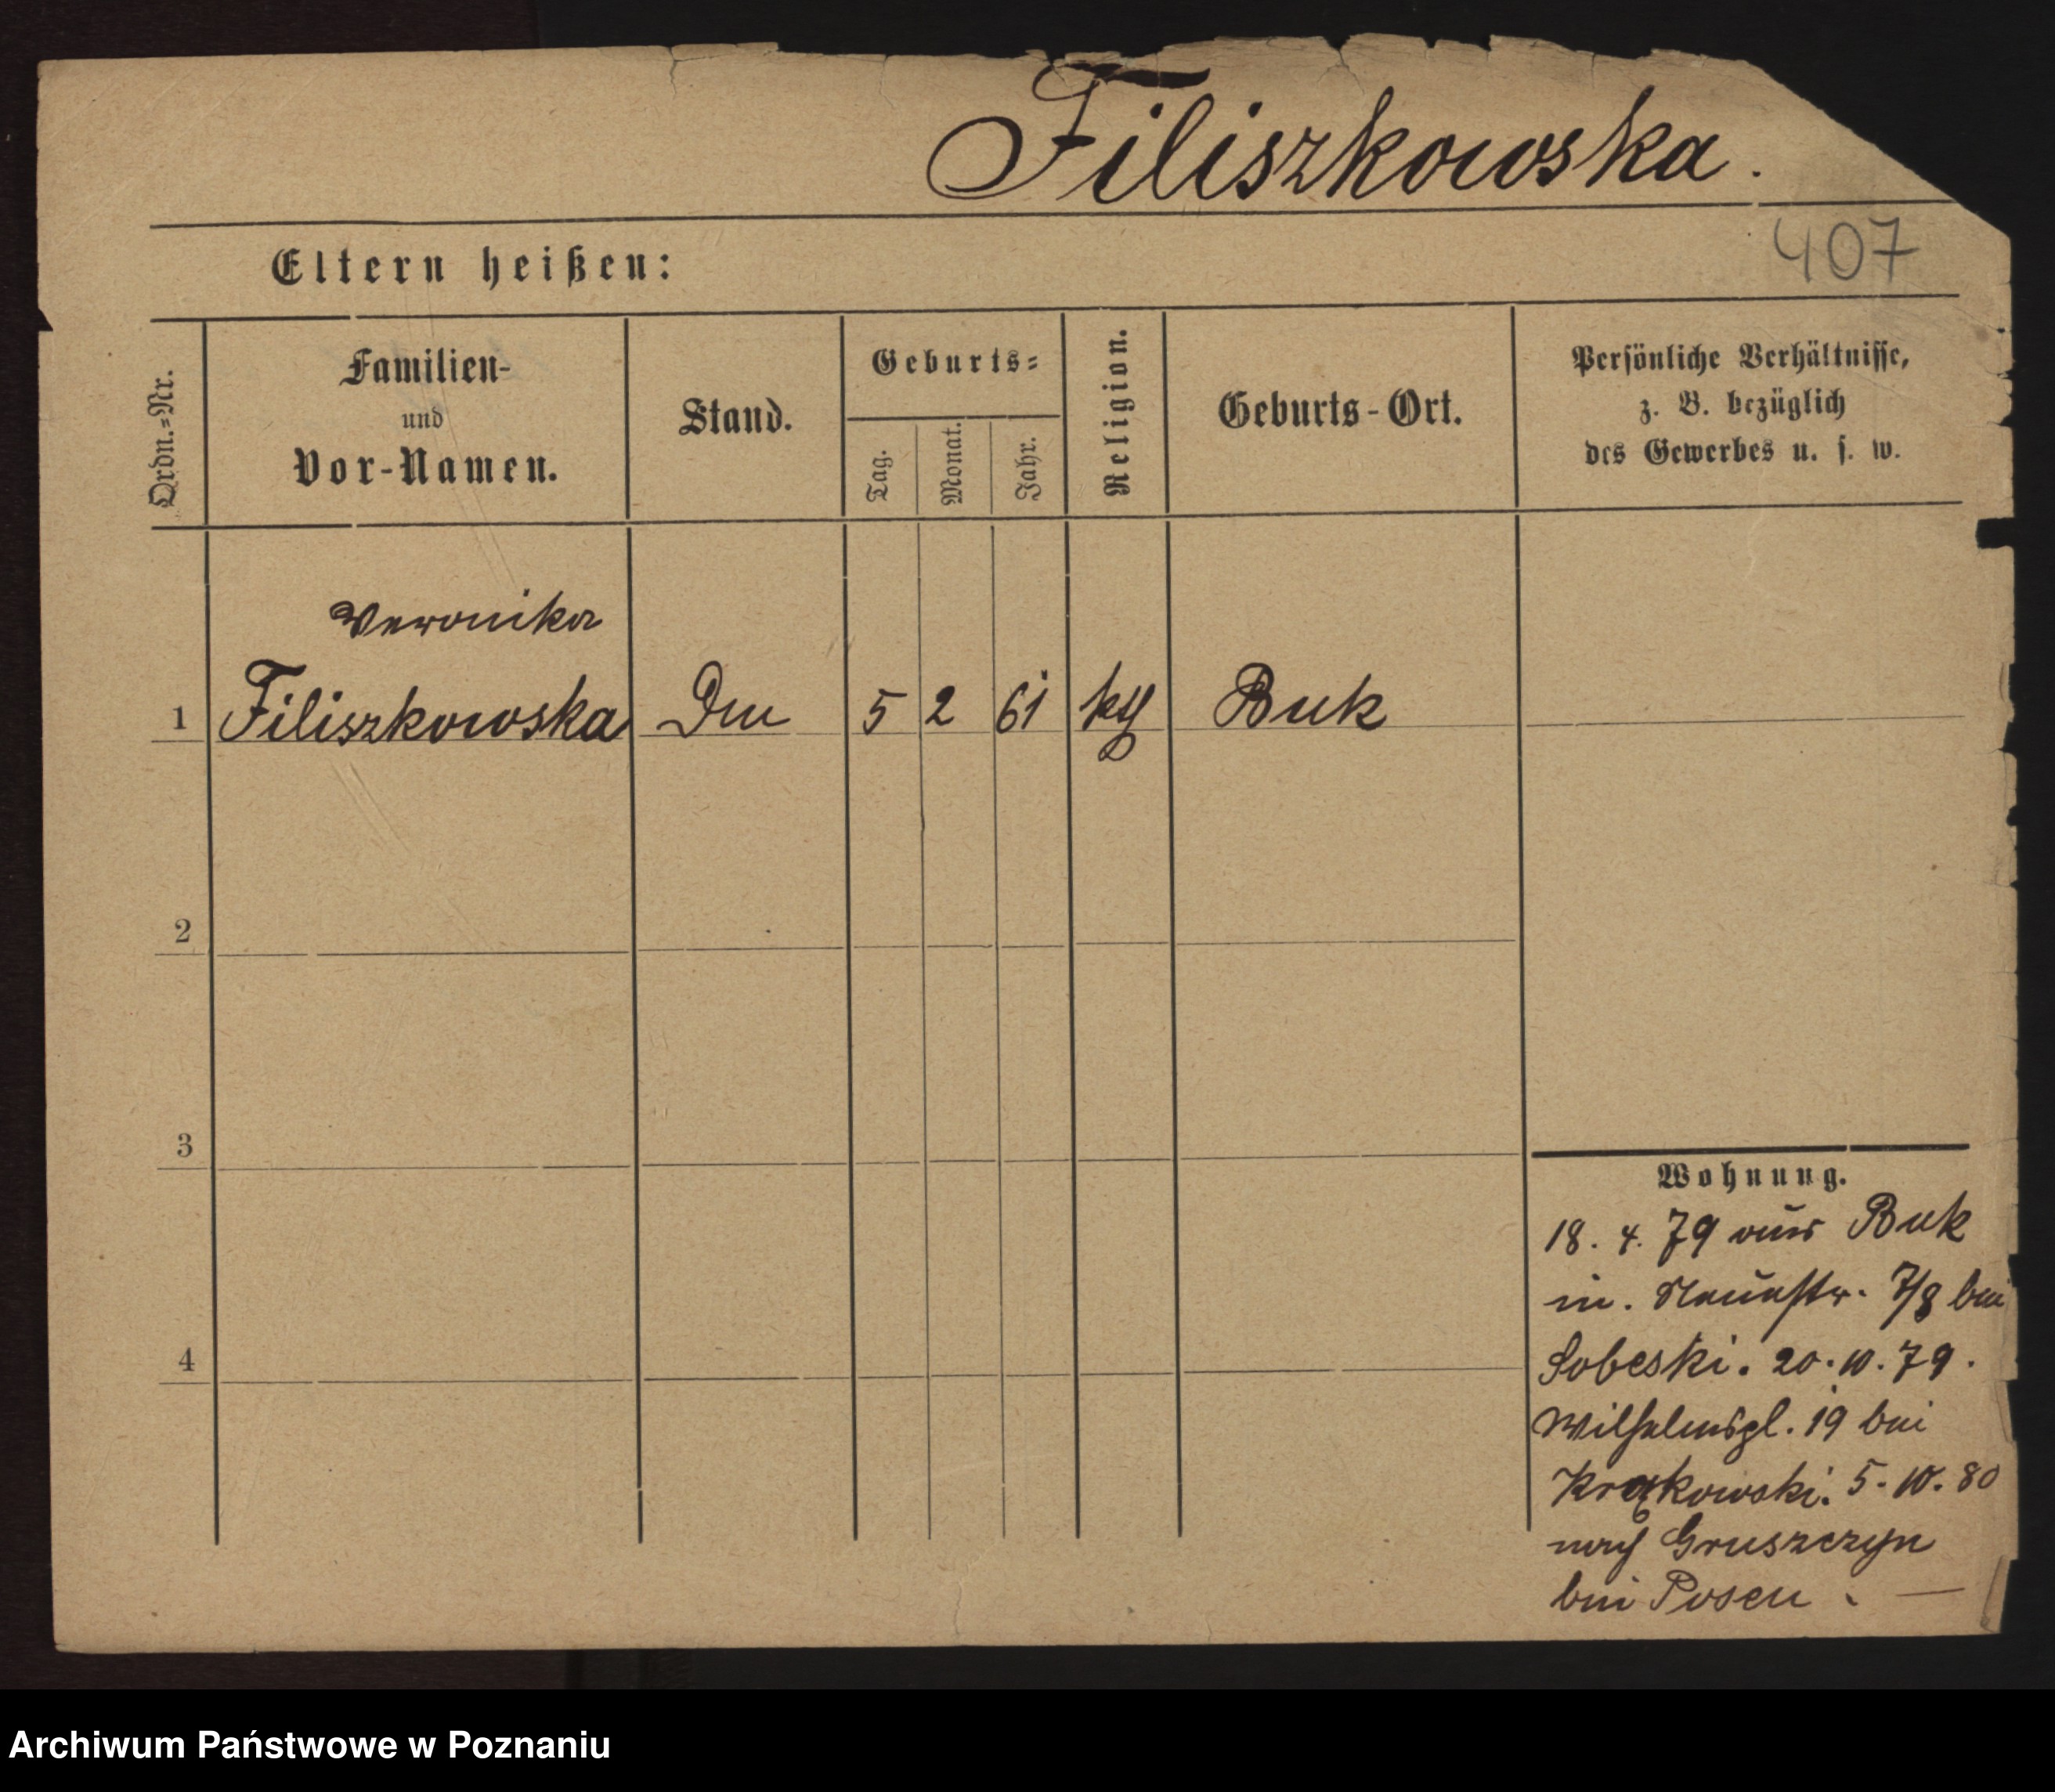 Filiszkowska.
407
Eltern heißen:
Ordn.-Nr.
Familien-
und
Vor-Namen.
Stand.
Geburts-
Tag.
Monat.
Jahr.
Religion.
Geburts-Ort.
Persönliche Verhältnisse,
z. B. bezüglich
des Gewerbes u. s. w.
Veronika
1 Filiszkowska 5 2 61 kth Buk
2
3
4
Wohnung.
18. 4. 79 aus Buk
Neuestr. 7/8 bei
Sobeski. 20. 10. 79.
Wilhelmspl. 19 bei
Krakowski. 5. 10. 80
nach Gruszczyn
bei Posen. —
Archiwum Państwowe w Poznaniu